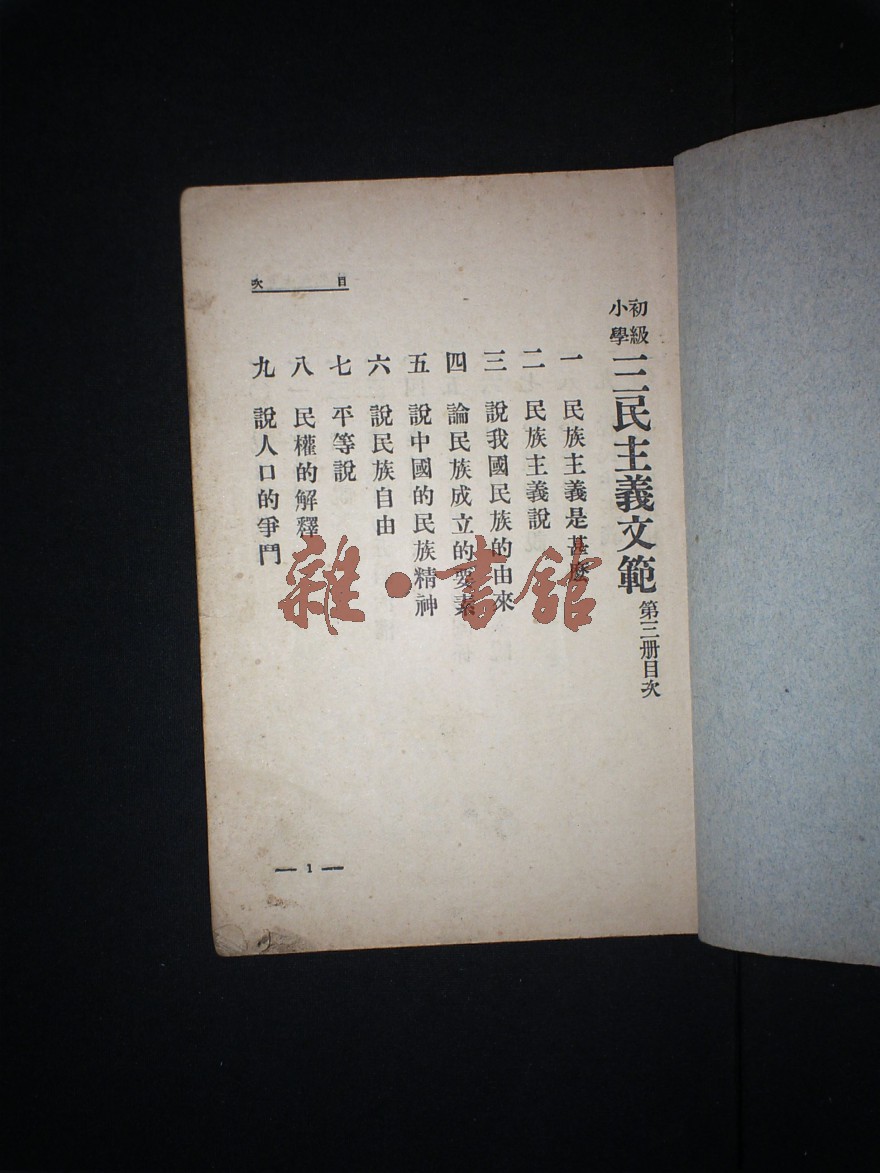 初級小學三民主義文範第三册目次
一 民族主義是甚麽
二 民族主義說
三 說我國民族的由來
四 論民族成立的要素
五 說中國的民族精神
六 說民族自由
七 平等說
八 民權的解釋
九 說人口的爭鬥
目次
1
雜·書館